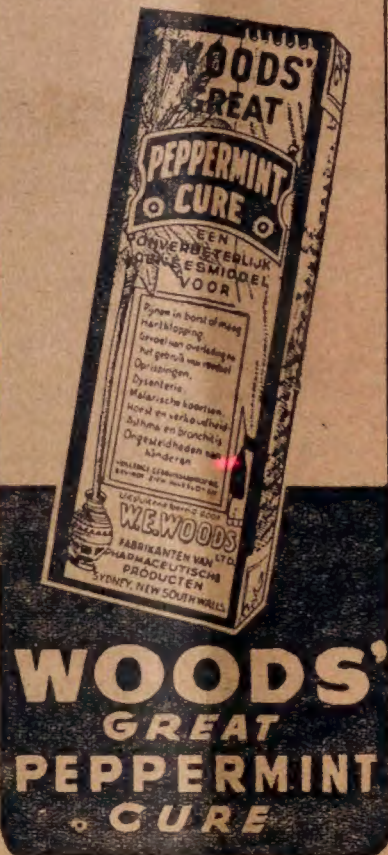 WOODS'
GREAT
PEPPERMINT
CURE
EEN
ONVERBETERLIJK
GENEESMIDDEL
VOOR
Pijnen in borst of maag
Hartklopping.
Gevoel van overlading na
het gebruik van voedsel
Oprispingen.
Dysenterie.
Malarische koortsen.
Hoest en verkoudheid
Asthma en bronchitis
Ongesteldheden van
kinderen
W.E. WOODS
LTD.
FABRIKANTEN VAN
PHARMACEUTISCHE
PRODUCTEN
SYDNEY, NEW SOUTH WALES
WOODS'
GREAT
PEPPERMINT
CURE